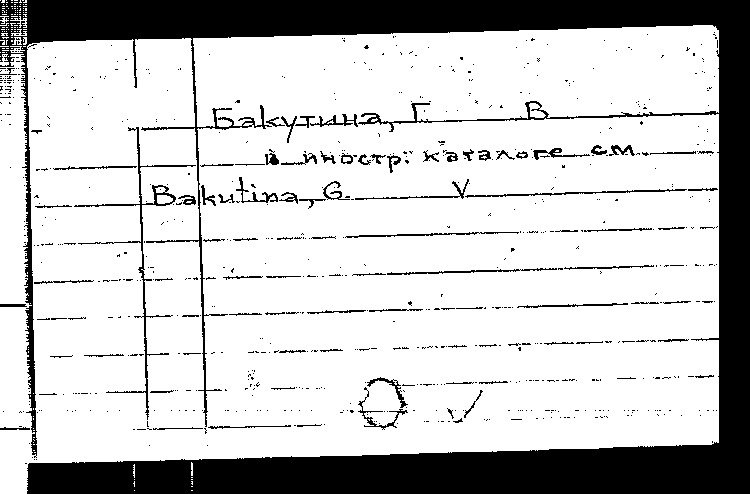 Бакутина, Г. В
в иностр. каталоге см.
Bakutina, G. V